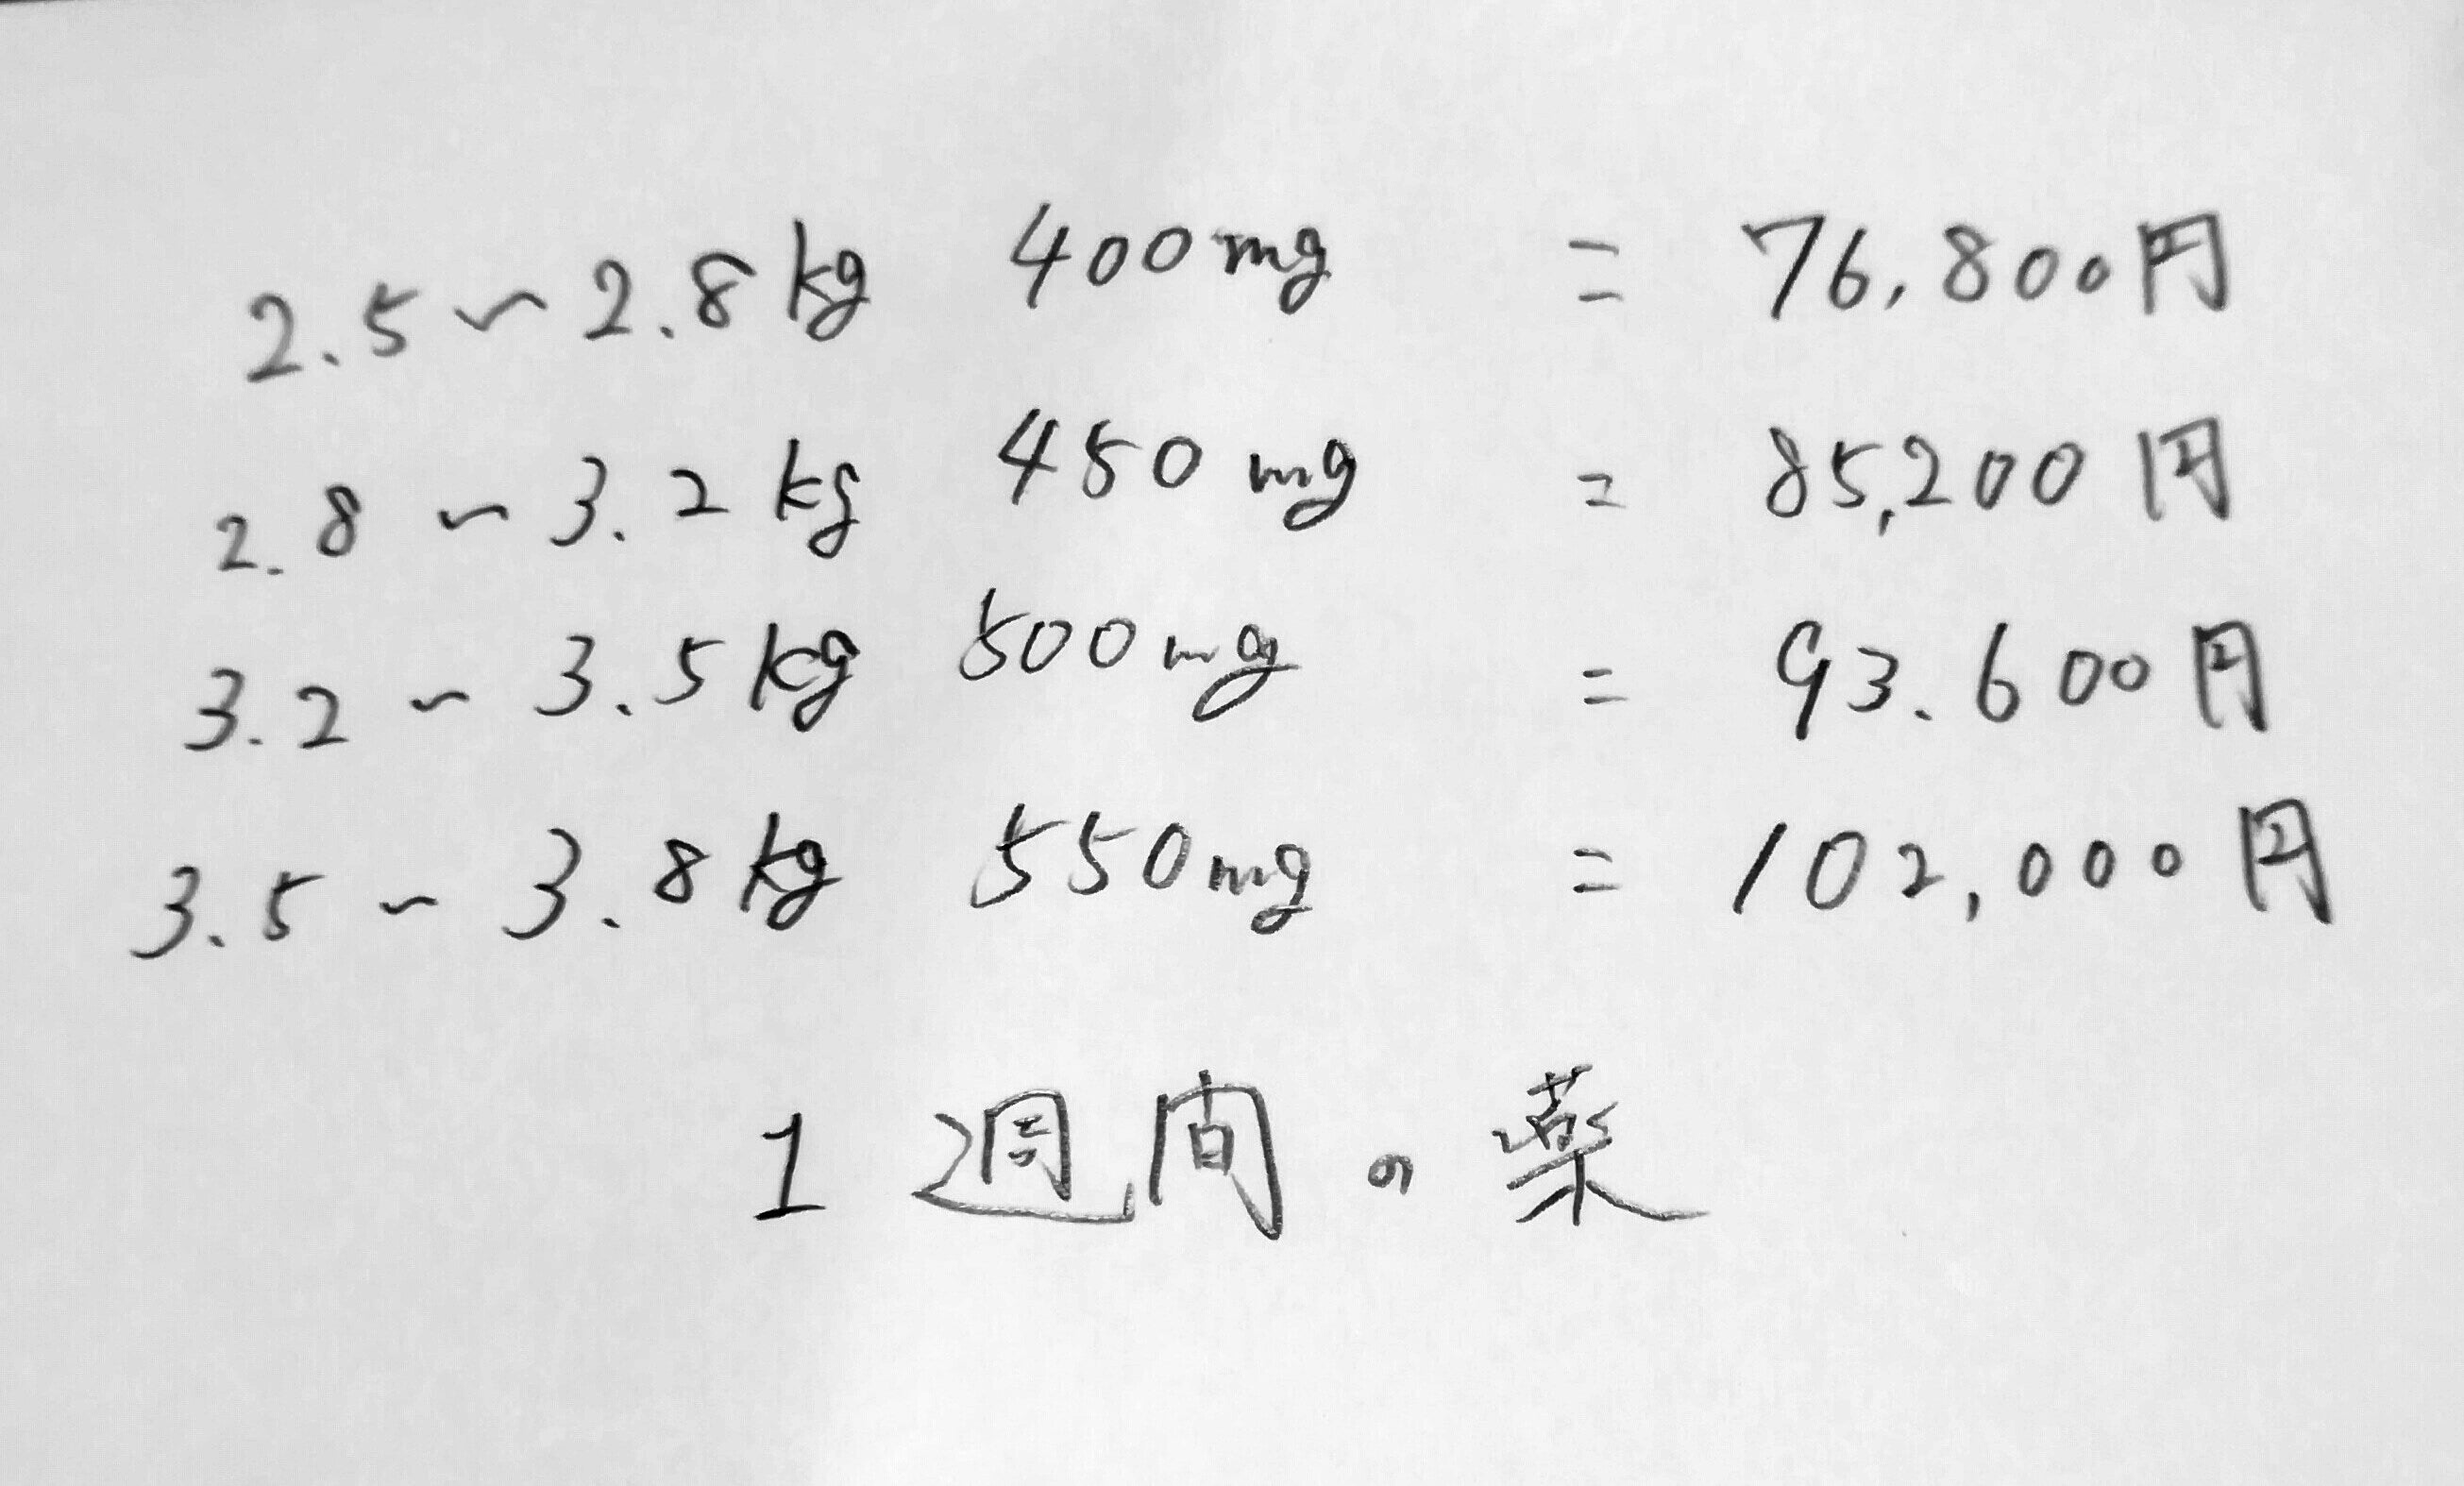 2.5~2.8kg 400mg = 76,800円
2.8~3.2kg 450mg = 85,200円
3.2~3.5kg 500mg = 93.600円
3.5~3.8kg 550mg = 102,000円
1週間の薬